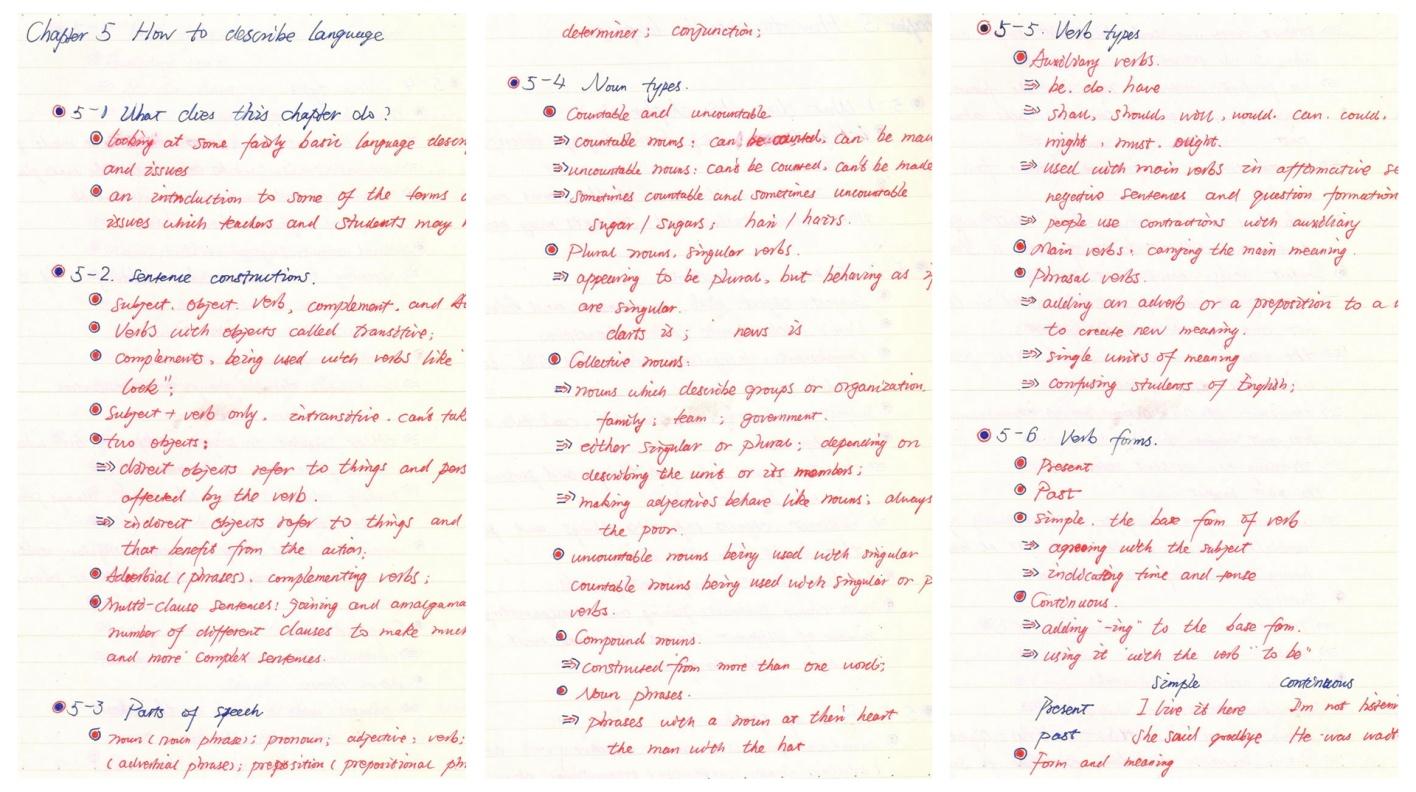 Chapter 5 How to describe language
5-1 What does this chapter do?
looking at some fairly basic language descr
and issues
an introduction to some of the terms
issues which teachers and students may
5-2. Sentence constructions.
Subject. object. verb, complement. and
Verbs with objects called transitive;
complements, being used with verbs like
look";
Subject + verb only. intransitive. can't tak
two objects:
⇒ direct objects refer to things and pers
affected by the verb.
⇒ indirect objects refer to things and
that benefit from the action;
Adverbial (phrases). complementing verbs;
Multi-clause sentences: Joining and amalgama
number of different clauses to make much
and more complex sentences.
5-3 Parts of speech
noun (noun phrase); pronoun; adjective; verb;
(adverbial phrase); preposition (prepositional ph
determiner; conjunction;
5-4 Noun types.
Countable and uncountable
⇒ countable nouns: can be counted, can be mad
⇒ uncountable nouns: can't be counted, can't be made
⇒ Sometimes countable and sometimes uncountable
sugar / sugars; hair / hairs.
Plural nouns, singular verbs.
⇒ appearing to be plural, but behaving as if
are singular.
darts is; news is
Collective nouns:
⇒ nouns which describe groups or organization.
family; team; government.
⇒ either singular or plural; depending on
describing the unit or its members;
⇒ making adjectives behave like nouns: always
the poor.
uncountable nouns being used with singular
countable nouns being used with singular or p
verbs.
Compound nouns.
⇒ constrused from more than one words;
Noun phrases.
⇒ phrases with a noun at their heart
the man with the hat
5-5. Verb types
Auxiliary verbs.
⇒ be. do. have
⇒ shall, should, will, would. can. could.
might, must. ought.
⇒ used with main verbs in affirmative se
negative sentences and question formation
⇒ people use contractions with auxiliary
Main verbs: carrying the main meaning.
Phrasal verbs.
⇒ adding an adverb or a preposition to a
to create new meaning.
⇒ single units of meaning
⇒ confusing students of English;
5-6 Verb forms.
Present
Past
Simple. the base form of verb
⇒ agreeing with the subject
⇒ indicating time and tense
Continuous.
⇒ adding "-ing" to the base form.
⇒ using it with the verb "to be"
Simple continuous
Present I live it here I'm not listen
past She said goodbye He was wait
Form and meaning